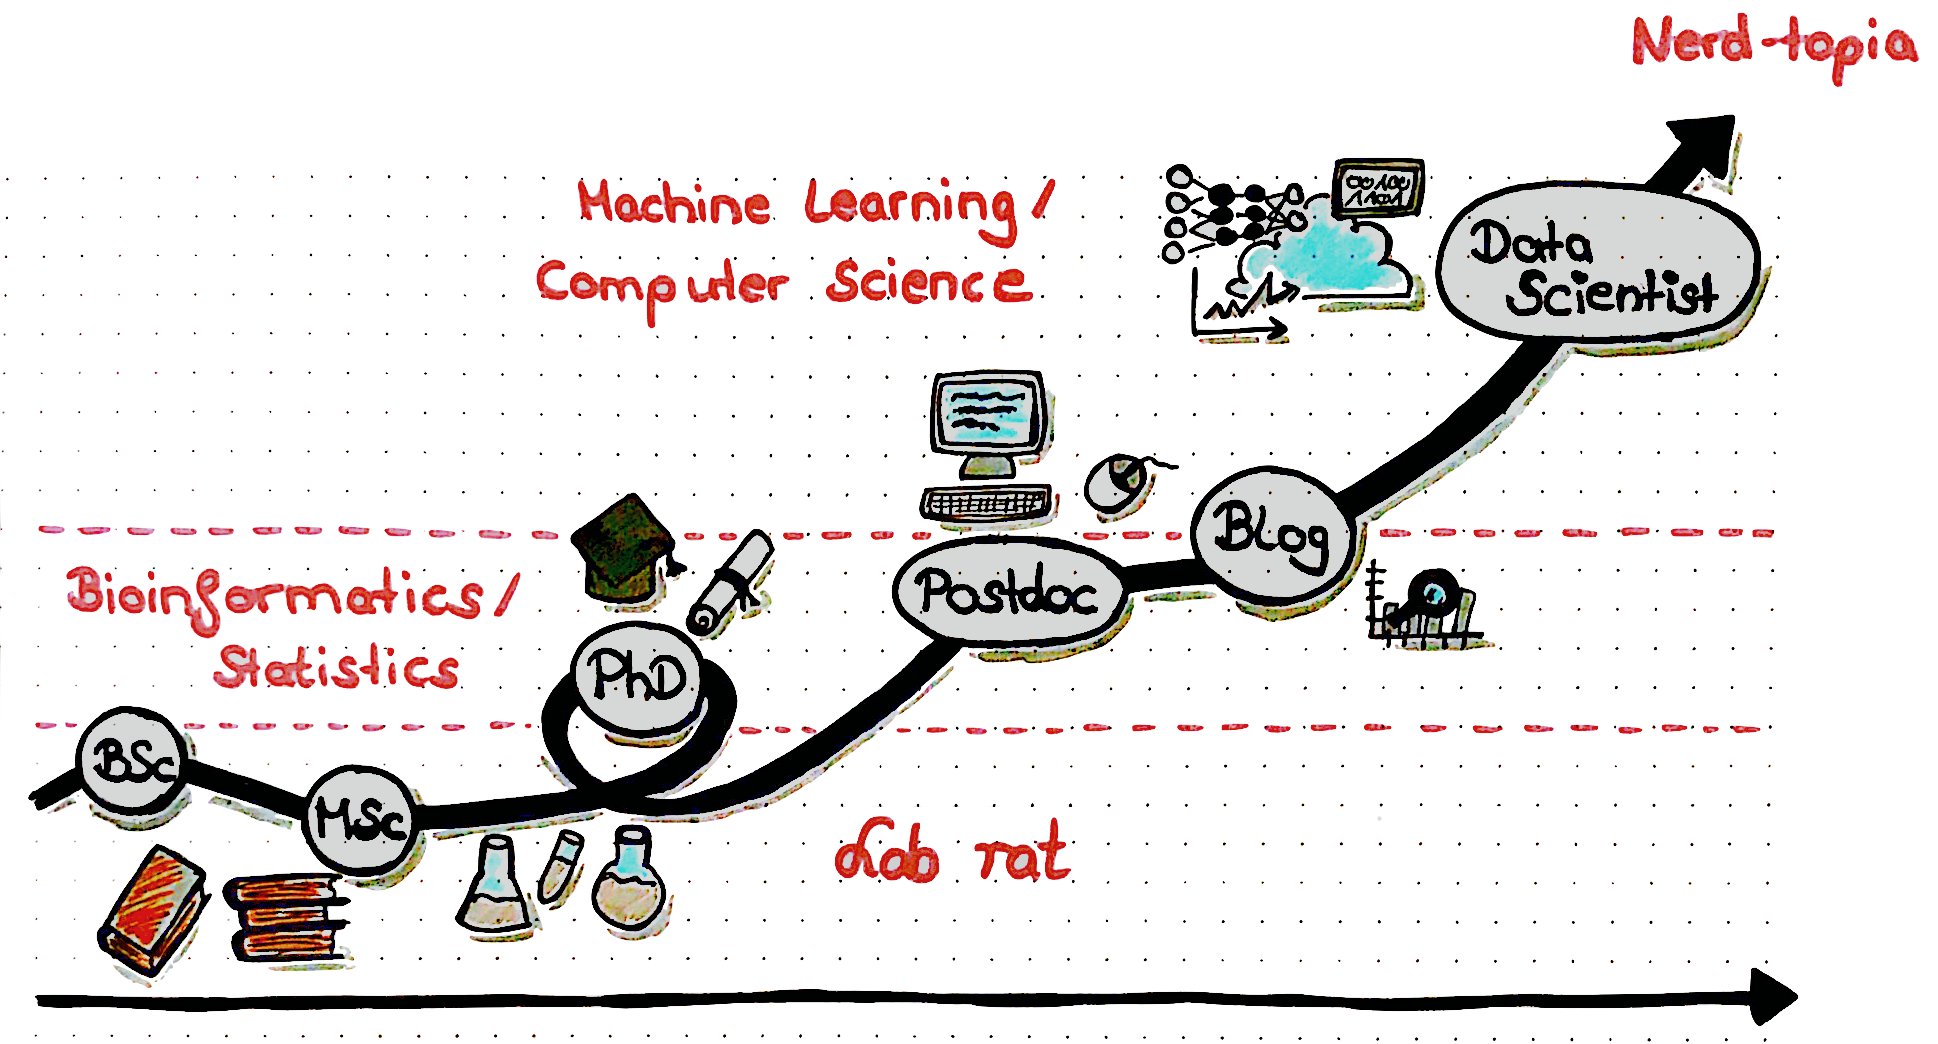 Nerd-topia
Machine Learning/
Computer Science
00100
11101
Data
Scientist
Blog
Postdoc
Bioinformatics/
Statistics
PhD
BSc
MSc
Lab rat